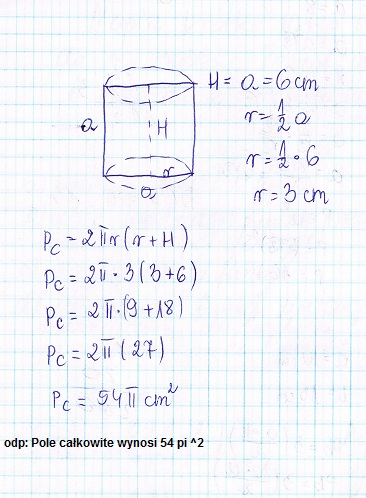 H = a = 6 cm
r = 1/2 a
r = 1/2 • 6
r = 3 cm
a
H
r
a
Pc = 2πr(r+H)
Pc = 2π • 3(3+6)
Pc = 2π•(9+18)
Pc = 2π(27)
Pc = 54π cm²
odp: Pole całkowite wynosi 54 pi ^2